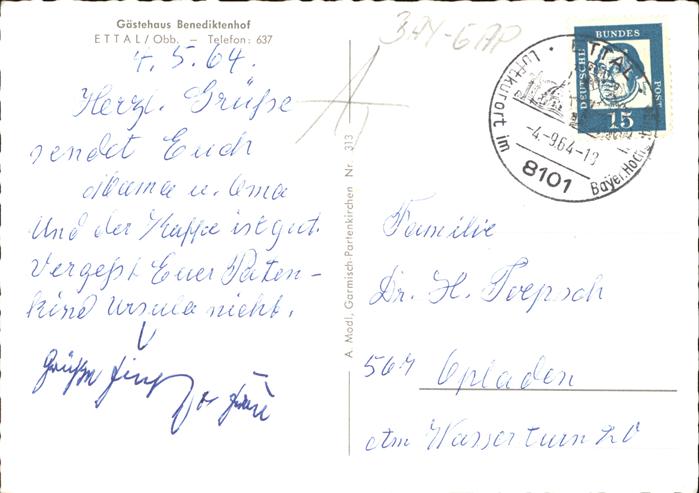 Gästehaus Benediktenhof
ETTAL/Obb. – Telefon: 637
4.5.64.
Herzl. Grüße
sendet Euch
Mama u. Oma
Und der Kaffe ist gut.
Vergeßt Euer Paten-
kind Ursula nicht.
Grüße
A. Modl, Garmisch-Partenkirchen Nr. 313
DEUTSCHE BUNDES POST
15
ETTAL
Luftkurort im
Bayer. Hoch
-4.-9.64-18
8101
Familie
Dr. H. Toepsch
567 Opladen
Am Wasserturm 20